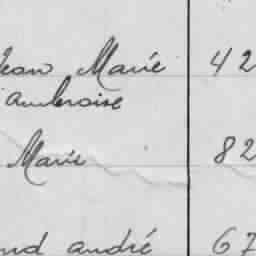 Jean Marie 42
Ambroise
Marie 82
and andré 67